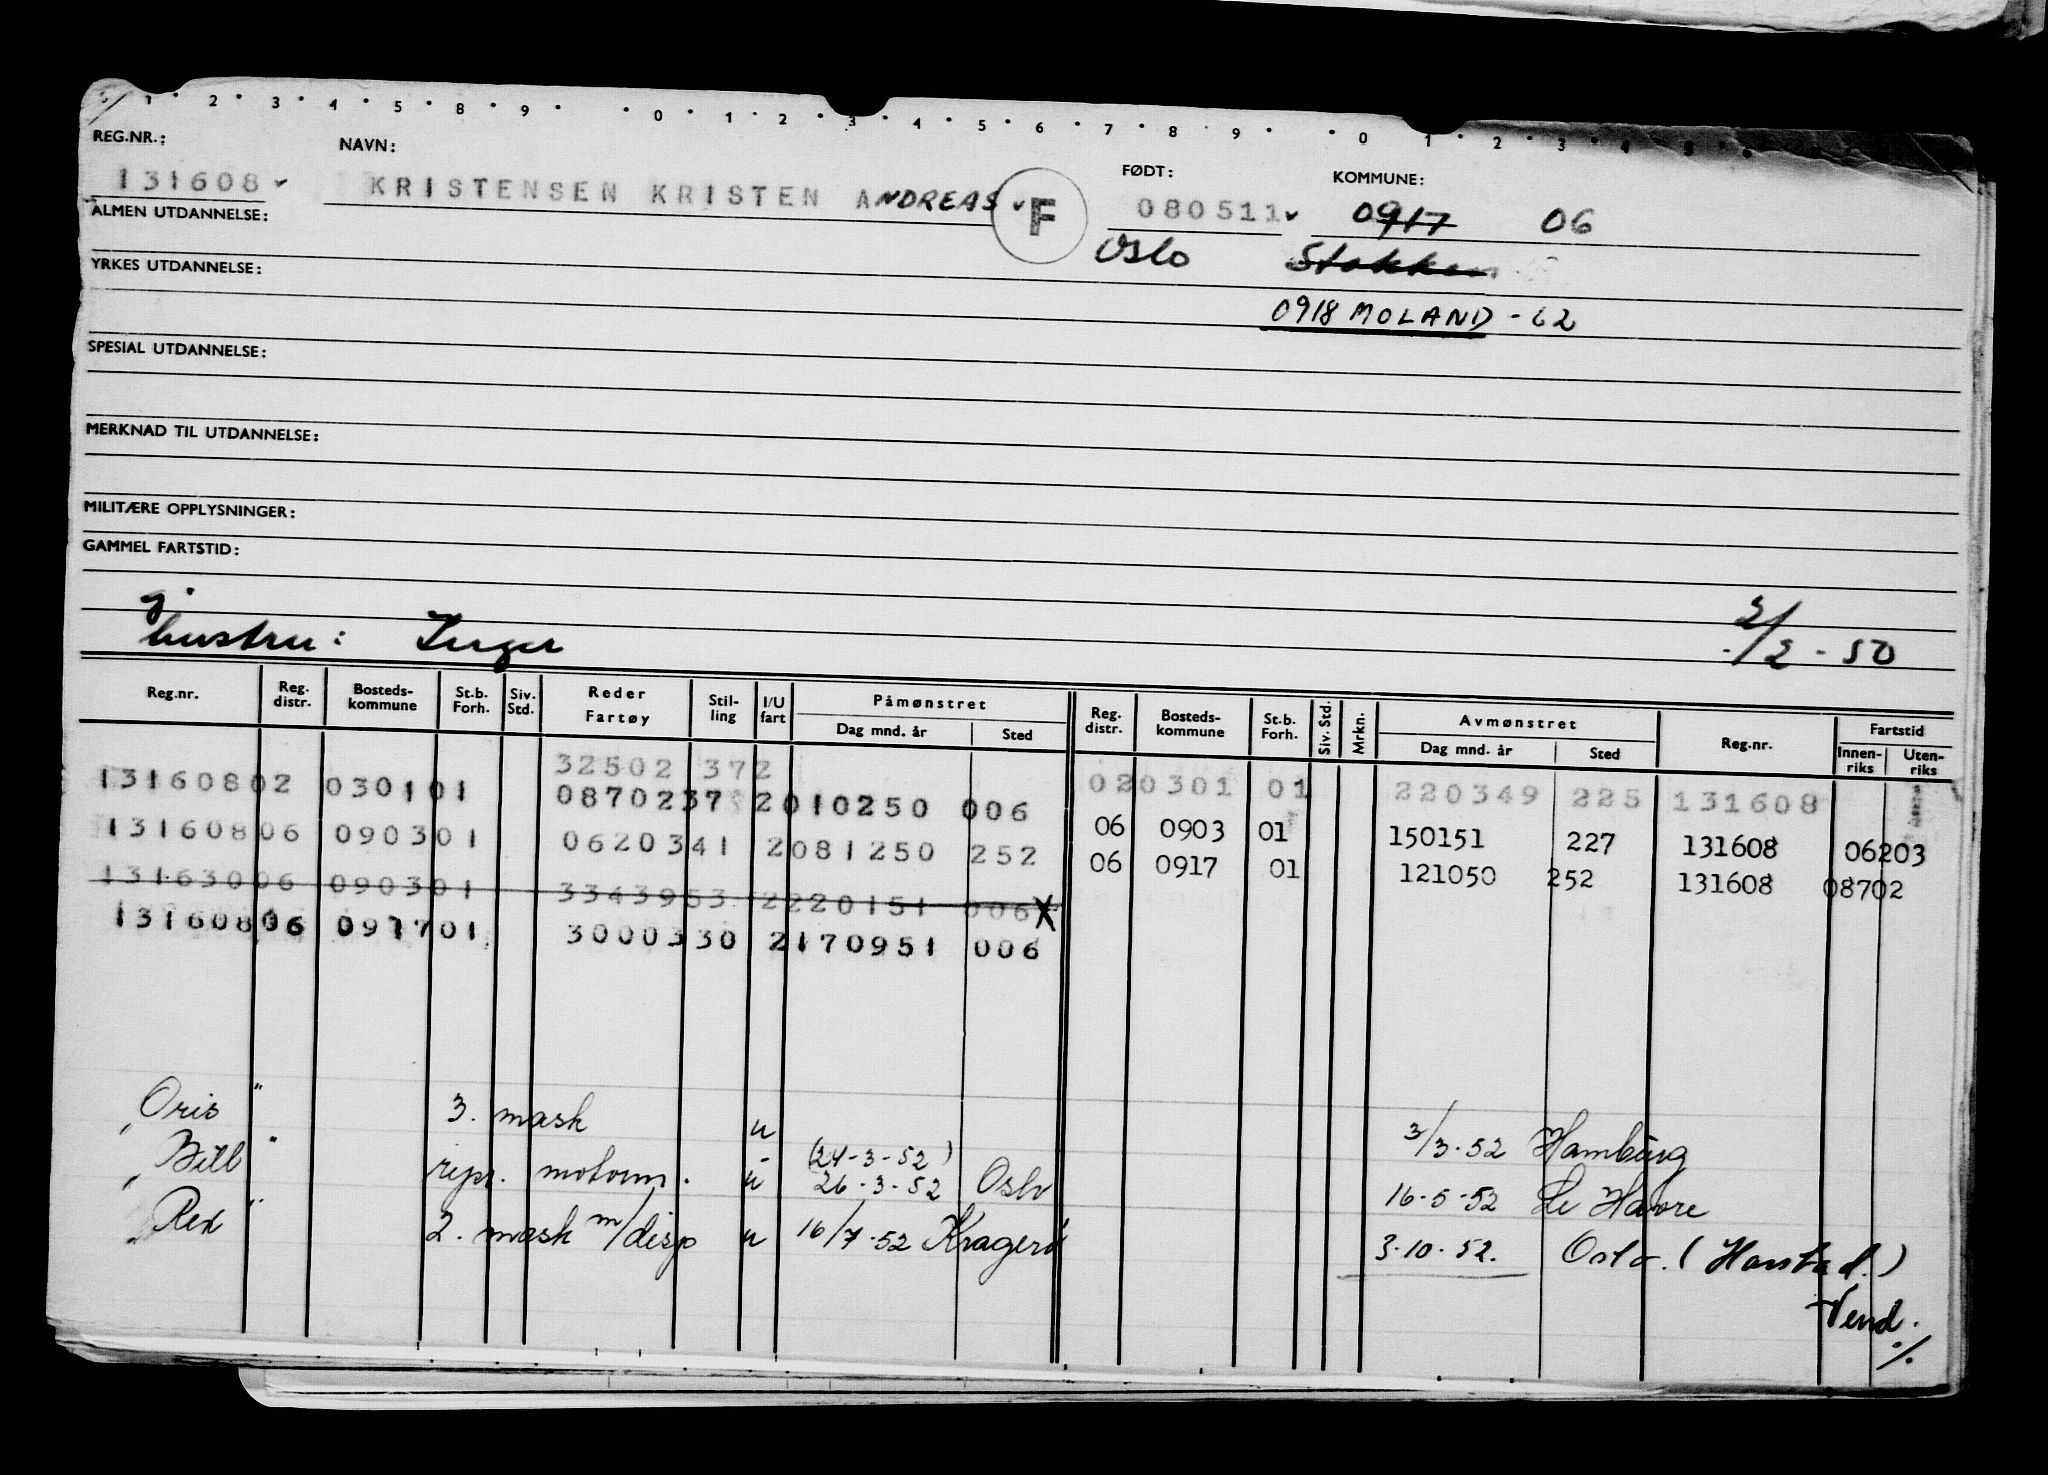 1 · 2 · 3 · 4 · 5 · 8 · 9 · · 0 · 1 · 2 · 3 · 4 · 5 · 6 · 7 · 8 · 9 · · 0 · 1 · 2 · 3 · 4 · 5
REG.NR.: NAVN: FØDT: KOMMUNE:
131608 KRISTENSEN KRISTEN ANDREAS F 080511 0917 06
ALMEN UTDANNELSE: Oslo Stokken
YRKES UTDANNELSE:
0918 MOLAND - 62
SPESIAL UTDANNELSE:
MERKNAD TIL UTDANNELSE:
MILITÆRE OPPLYSNINGER:
GAMMEL FARTSTID:
hustru: Inger 2/2 - 50
Reg.nr. Reg. distr. Bosteds-kommune St.b. Forh. Siv. Std. Reder Fartøy Stil-ling I/U fart Påmønstret Dag mnd. år Sted Reg. distr. Bosteds-kommune St.b. Forh. Siv. Std. Mrkn. Avmønstret Dag mnd. år Sted Reg.nr. Fartstid Innen-riks Uten-riks
32502 372 020301 01 220349 225 131608
13160802 030101 0870237 2010250 006
13160806 090301 0620341 2081250 252 06 0903 01 150151 227 131608 06203
13163006 090301 3343953 2220151 006 X 06 0917 01 121050 252 131608 08702
13160806 091701 3000330 2170951 006
"Oris" 3. mask u 3/3.52 Hamburg
"Bill" repr. motorm. u (24-3-52) 26-3-52 Oslo 16-5-52 Le Havre
"Rex" 2. mask m/disp u 16/7.52 Kragerø 3.10.52. Oslo. (Harstad.)
Vend.
./.